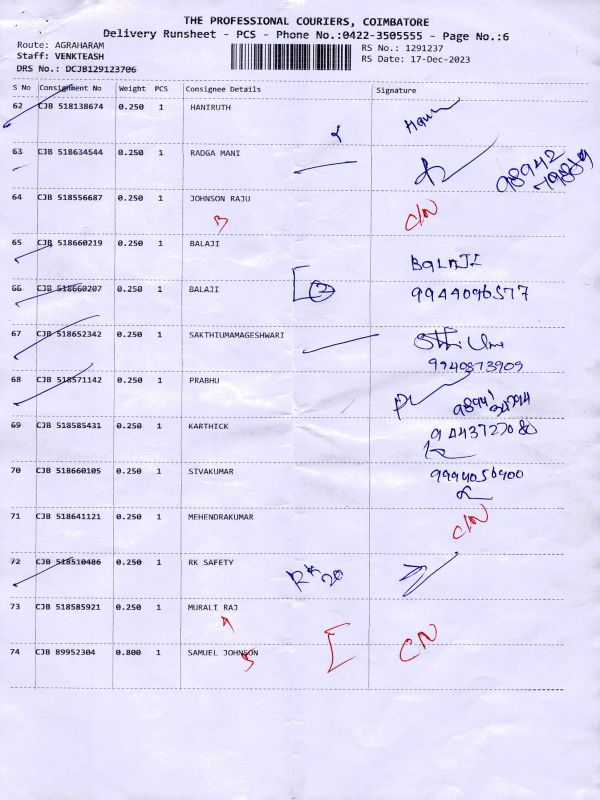 THE PROFESSIONAL COURIERS, COIMBATORE
Delivery Runsheet - PCS - Phone No.:0422-3505555 - Page No.:6
Route: AGRAHARAM
RS No.: 1291237
Staff: VENKTEASH
RS Date: 17-Dec-2023
DRS No.: DCJB129123706
S No Consignment No Weight PCS Consignee Details Signature
62 CJB 518138674 0.250 1 HANIRUTH
63 CJB 518634544 0.250 1 RADGA MANI
98942
64 CJB 518556687 0.250 1 JOHNSON RAJU C/N
65 CJB 518660219 0.250 1 BALAJI BALAJI
66 CJB 518660207 0.250 1 BALAJI 2 9944096577
67 CJB 518652342 0.250 1 SAKTHIUMAMAGESHWARI
9940873909
68 CJB 518571142 0.250 1 PRABHU
69 CJB 518585431 0.250 1 KARTHICK 9443727080
70 CJB 518660105 0.250 1 SIVAKUMAR 9994056400
71 CJB 518641121 0.250 1 MEHENDRAKUMAR C/N
72 CJB 518510486 0.250 1 RK SAFETY
73 CJB 518585921 0.250 1 MURALI RAJ
74 CJB 89952304 0.800 1 SAMUEL JOHNSON CN